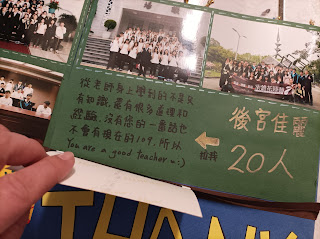 從老師身上學到的不是只
有知識，還有很多處理和
經驗，沒有您的一番話也
不會有現在的109，所以
you are a good teacher :)
後宮佳麗
20人
THANK